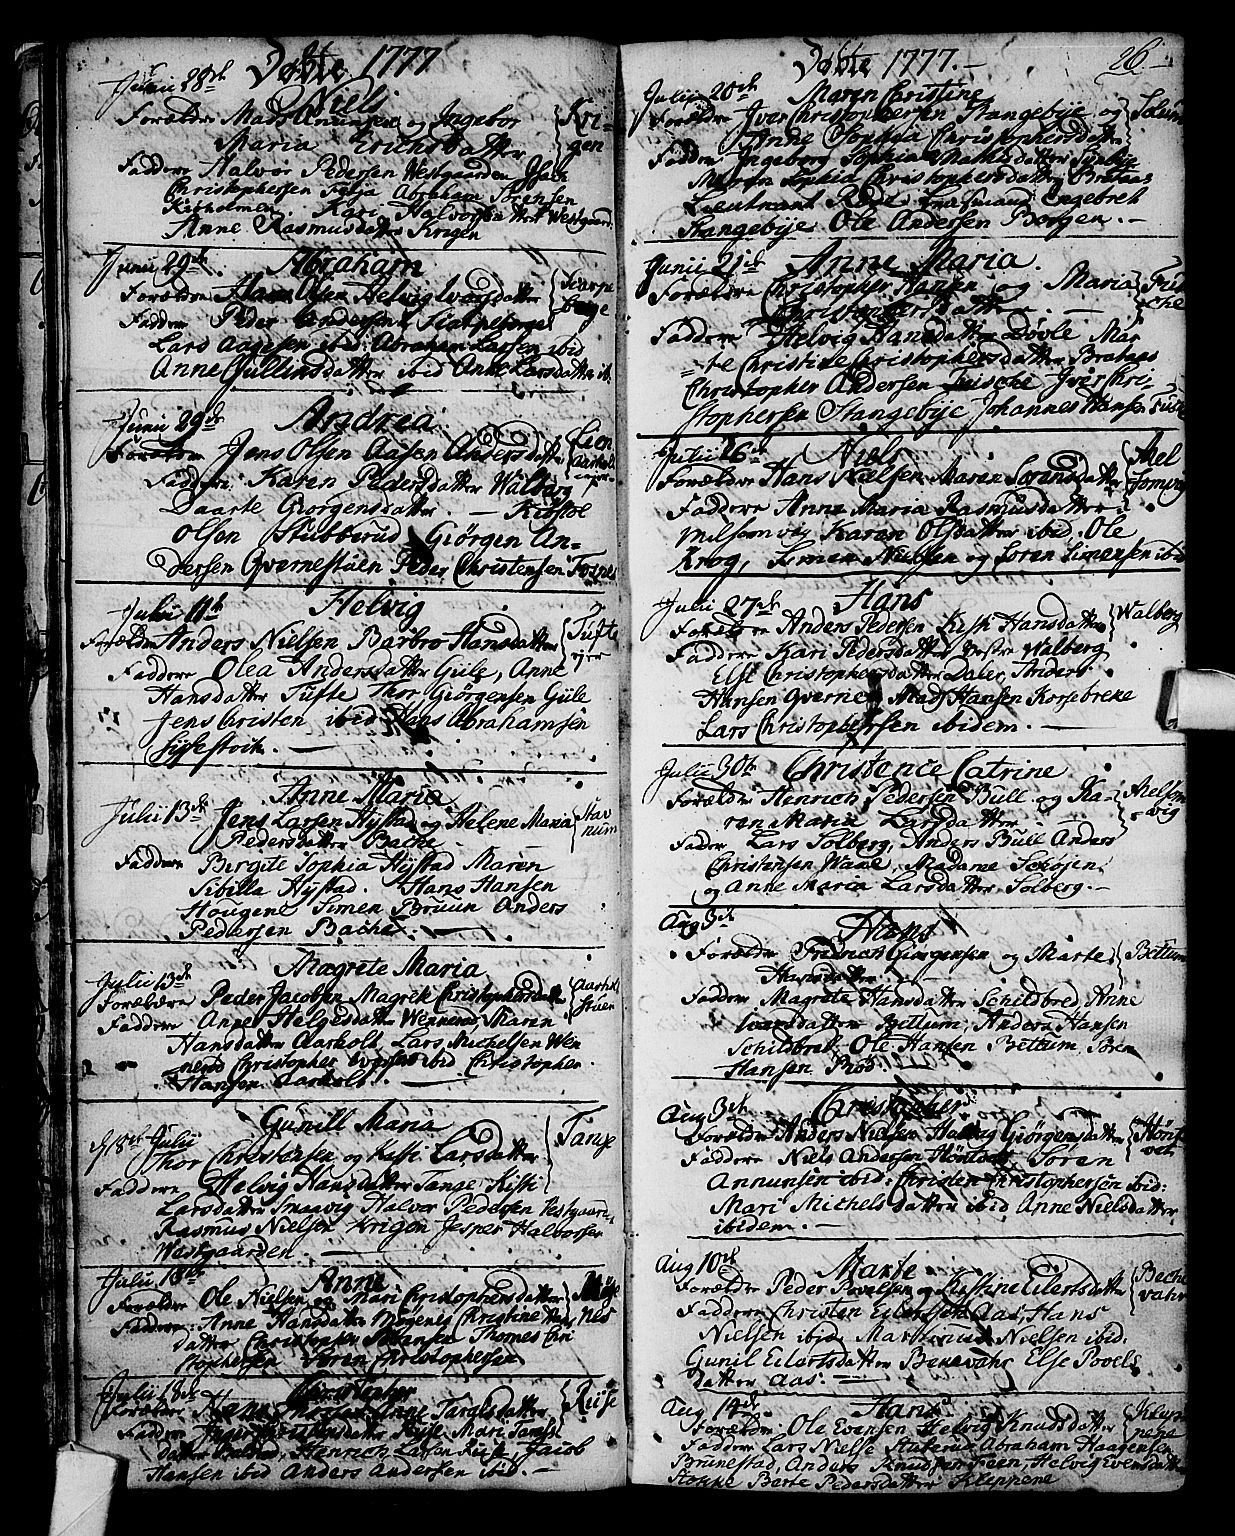 Døbte 1777
Junii 28de
Niels
Forældre Mads Anunsen og Ingebor
Maria Erichsdatter
Krigen
Faddere Halvor Pedersen Westgaarden Jach
Christophersen Abraham Sørensen
Kirholmen. Kari Halvorsdatter Westgaard
Anne Rasmusdatter Krigen
Junii 29de Abraham
Forældre Hans Olsen Helvig Ivarsdatter
Faddere Peder Andersen
Lars Aagesen ibid Abraham Larsen ibid
Anne Gullursdatter ibid Anne Larsdatter ib.
Junii 29de Andrea
Forældre Jens Olsen Aasen Andersdatter
Lien
Faddere Karen Pedersdatter Walberg
Daarte Giorgensdatter. Kirstie
Olsen Stubberud Giörgen An=
dersen Qvernestuen Peder Christensen Fosnes
Julii 11te Helvig
Forældre Anders Nielsen Barbro Hansdatter
Tufte
Faddere Olea Andersdatter Gule, Anne
Hansdatter Tufte Thor Giörgensen Gule
Jens Christen ibid Hans Abrahamsen
Julii 13de Anne Maria
Jens Larsen Hystad og Helene Maria
Pedersdatter Bache
Stavnum
Faddere Birgite Sophia Hystad Maren
Sibilla Hystad. Hans Hansen
Hougene Simen Bruun Anders
Pedersen Bache.
Julii 13de Magrete Maria
Forældre Peder Jacobsen Magrete Christophersdatter
Faddere Anne Helgesdatter Wennerød, Maren
Hansdatter Aarhold Lars Michelsen Wen
nerød Christopher Iversen ibid Christopher
Hansen Aarholt.
Gunill Maria
18de Julii
Thor Christensen og Kisti Larsdatter
Tange
Faddere Helvig Hansdatter Tange Kisti
Larsdatter Smaavig Halvor Pedersen Vestgaarden
Rasmus Nielsen Krigen Jesper Halvorsen
Westgaarden.
Julii 18de Anne
Forældre Ole Nielsen og Mari Christophersdatter
Faddere: Anne Hansdatter Møgenes Christine Hans
datter Christopher Hansen Thomes Chri
stophersen Søren Christophersen
Julii 18de Christopher
Riise
datter Henrich Larsen Riise, Jacob
Hansen ibid Anders Andersen ibid.
Døbte 1777.
26
Julii 20de Maren Christine
Forældre Iver Christophersen Stangebije og
Anne Sophia Christophersdatter
Faddere Ingeborg Sophia Madsdatter
Maren Sophia Christophersdatter Brahaas
Lieutnant Røde Engebret
Stangebije Ole Andersen Borgen.
Junii 21de Anne Maria.
Forældre Christopher Hansen og Maria
Christensdatter
Faddere Helvig Hansdatter Døvle Mar
te Christine Christophersdatter Brahaas
Christopher Andersen Frische Iver Chri=
stophersen Stangebije Johannes Hansen
Julii 26de Niels
Forældre Hans Nielsen Maren Sørensdatter
Melsomvig
Faddere Anne Maria Rasmusdatter
Milsomvig Karen Olsdatter ibid, Ole
Krog, Simen Nielsen og Søren Simensen ibid
Julii 27de Hans
Forældre Anders Pedersen Kisti Hansdatter
Walberg
Faddere Kari Pedersdatter Vestre Walberg
Else Christophersdatter Daler, Anders
Hansen Qverne Mads Hansen Korsebreke
Lars Christophersen ibidem.
Julii 30te Christence Catrine
Forældre Henrich Pedersen Bull og Ka=
ren Maria Larsdatter
Melsomvig
Fadder Lars Solberg, Anders Bull Anders
Christensen Waale, Madame
og Anne Maria Larsdatter Solberg.
Aug 3de Hans
Forældre Fredrich Giørgensen og Marte
Hansdatter
Bettum
Faddere Magrete Hansdatter Schildbred Anne
Ivarsdatter Bettum, Anders Hansen
Schildbred Ole Hansen Bettum
Hansen Rød
Aug 3de Christopher
Forældre Anders Nielsen Giørgensdatter
Faddere Niels Andersen Søren
Anunsen ibid: Christen Christophersøn ibid:
Mari Michelsdatter ibid Anne Nielsdatter
ibidem.
Aug 10de Marte
Forældre Peder Povelsen og Kistine Eilertsdatter
Bechevahr
Faddere Christen Eilertsen Aas, Hans
Nielsen ibid. Nielsen ibid.
Gunil Eilertsdatter Bechevahr Else Povels
datter Aas.
Aug 14de Hans
Forældre Ole Evensen Helvig Knudsdatter
Faddere Lars Abraham Haagensen
Brunestad, Anders Knudsen Feen, Helvig Evensdatter
Berte Pedersdatter Kleppene